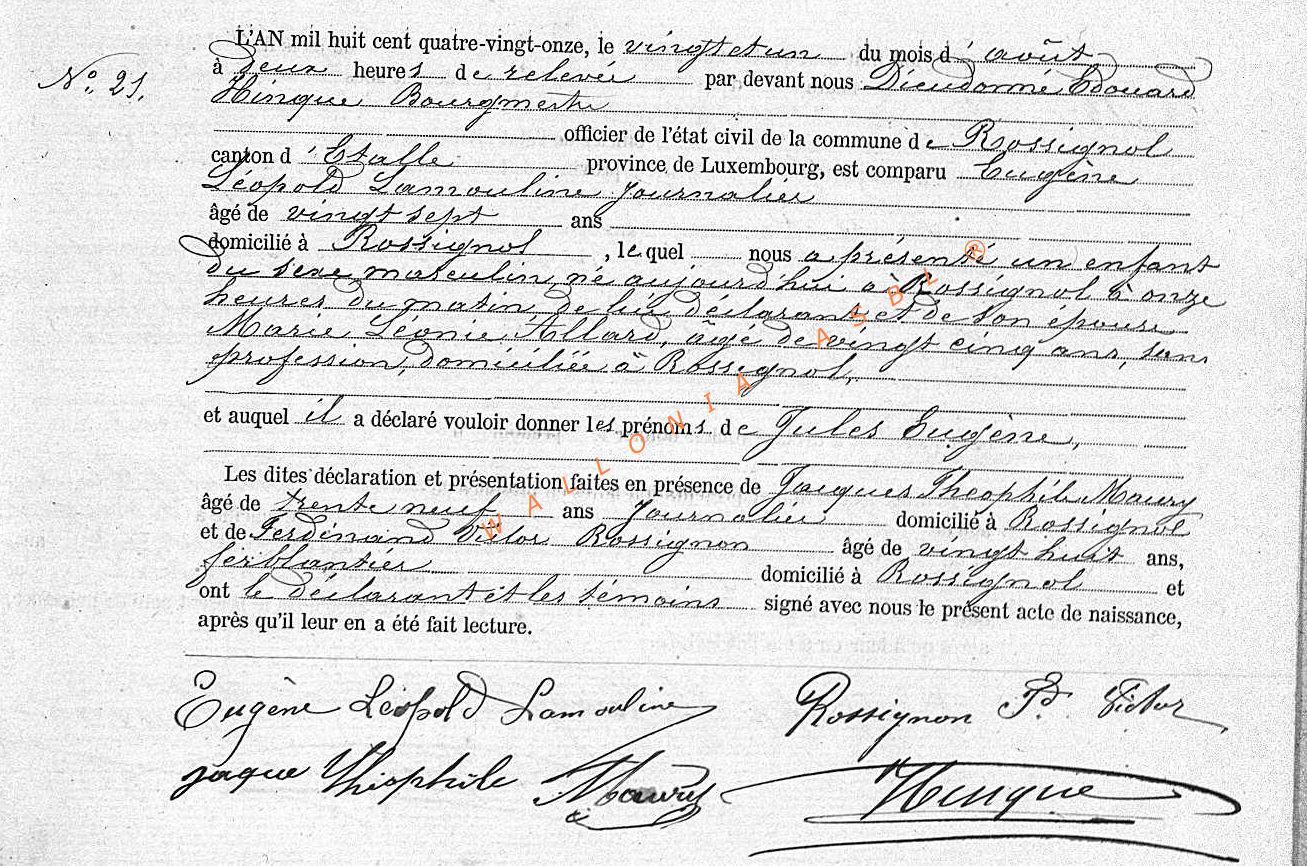 L'AN mil huit cent quatre-vingt-onze, le vingt et un du mois d' août
N° 21.
à deux heures de relevée par devant nous Dieudonné Edouard
Hinque Bourgmestre
officier de l'état civil de la commune de Rossignol
canton d'Etalle province de Luxembourg, est comparu Eugène
Léopold Lamouline Journalier
âgé de vingt sept ans
domicilié à Rossignol, lequel nous a présenté un enfant
du sexe masculin, né aujourd'hui à Rossignol à onze
heures du matin, de lui déclarant et de son épouse
Marie Léonie Allard, âgé de vingt cinq ans, sans
profession, domiciliée à Rossignol,
et auquel il a déclaré vouloir donner les prénoms de Jules Eugène,
Les dites déclaration et présentation faites en présence de Jacques Théophile Maury
âgé de trente neuf ans Journalier domicilié à Rossignol
et de Ferdinand Victor Rossignon âgé de vingt huit ans,
ferblantier domicilié à Rossignol et
ont le déclarant et les témoins signé avec nous le présent acte de naissance,
après qu'il leur en a été fait lecture.
Eugène Léopold Lamouline Rossignon F^d. Victor
jaque Théophile Maury Hinque
WALLONIA ASBL ®